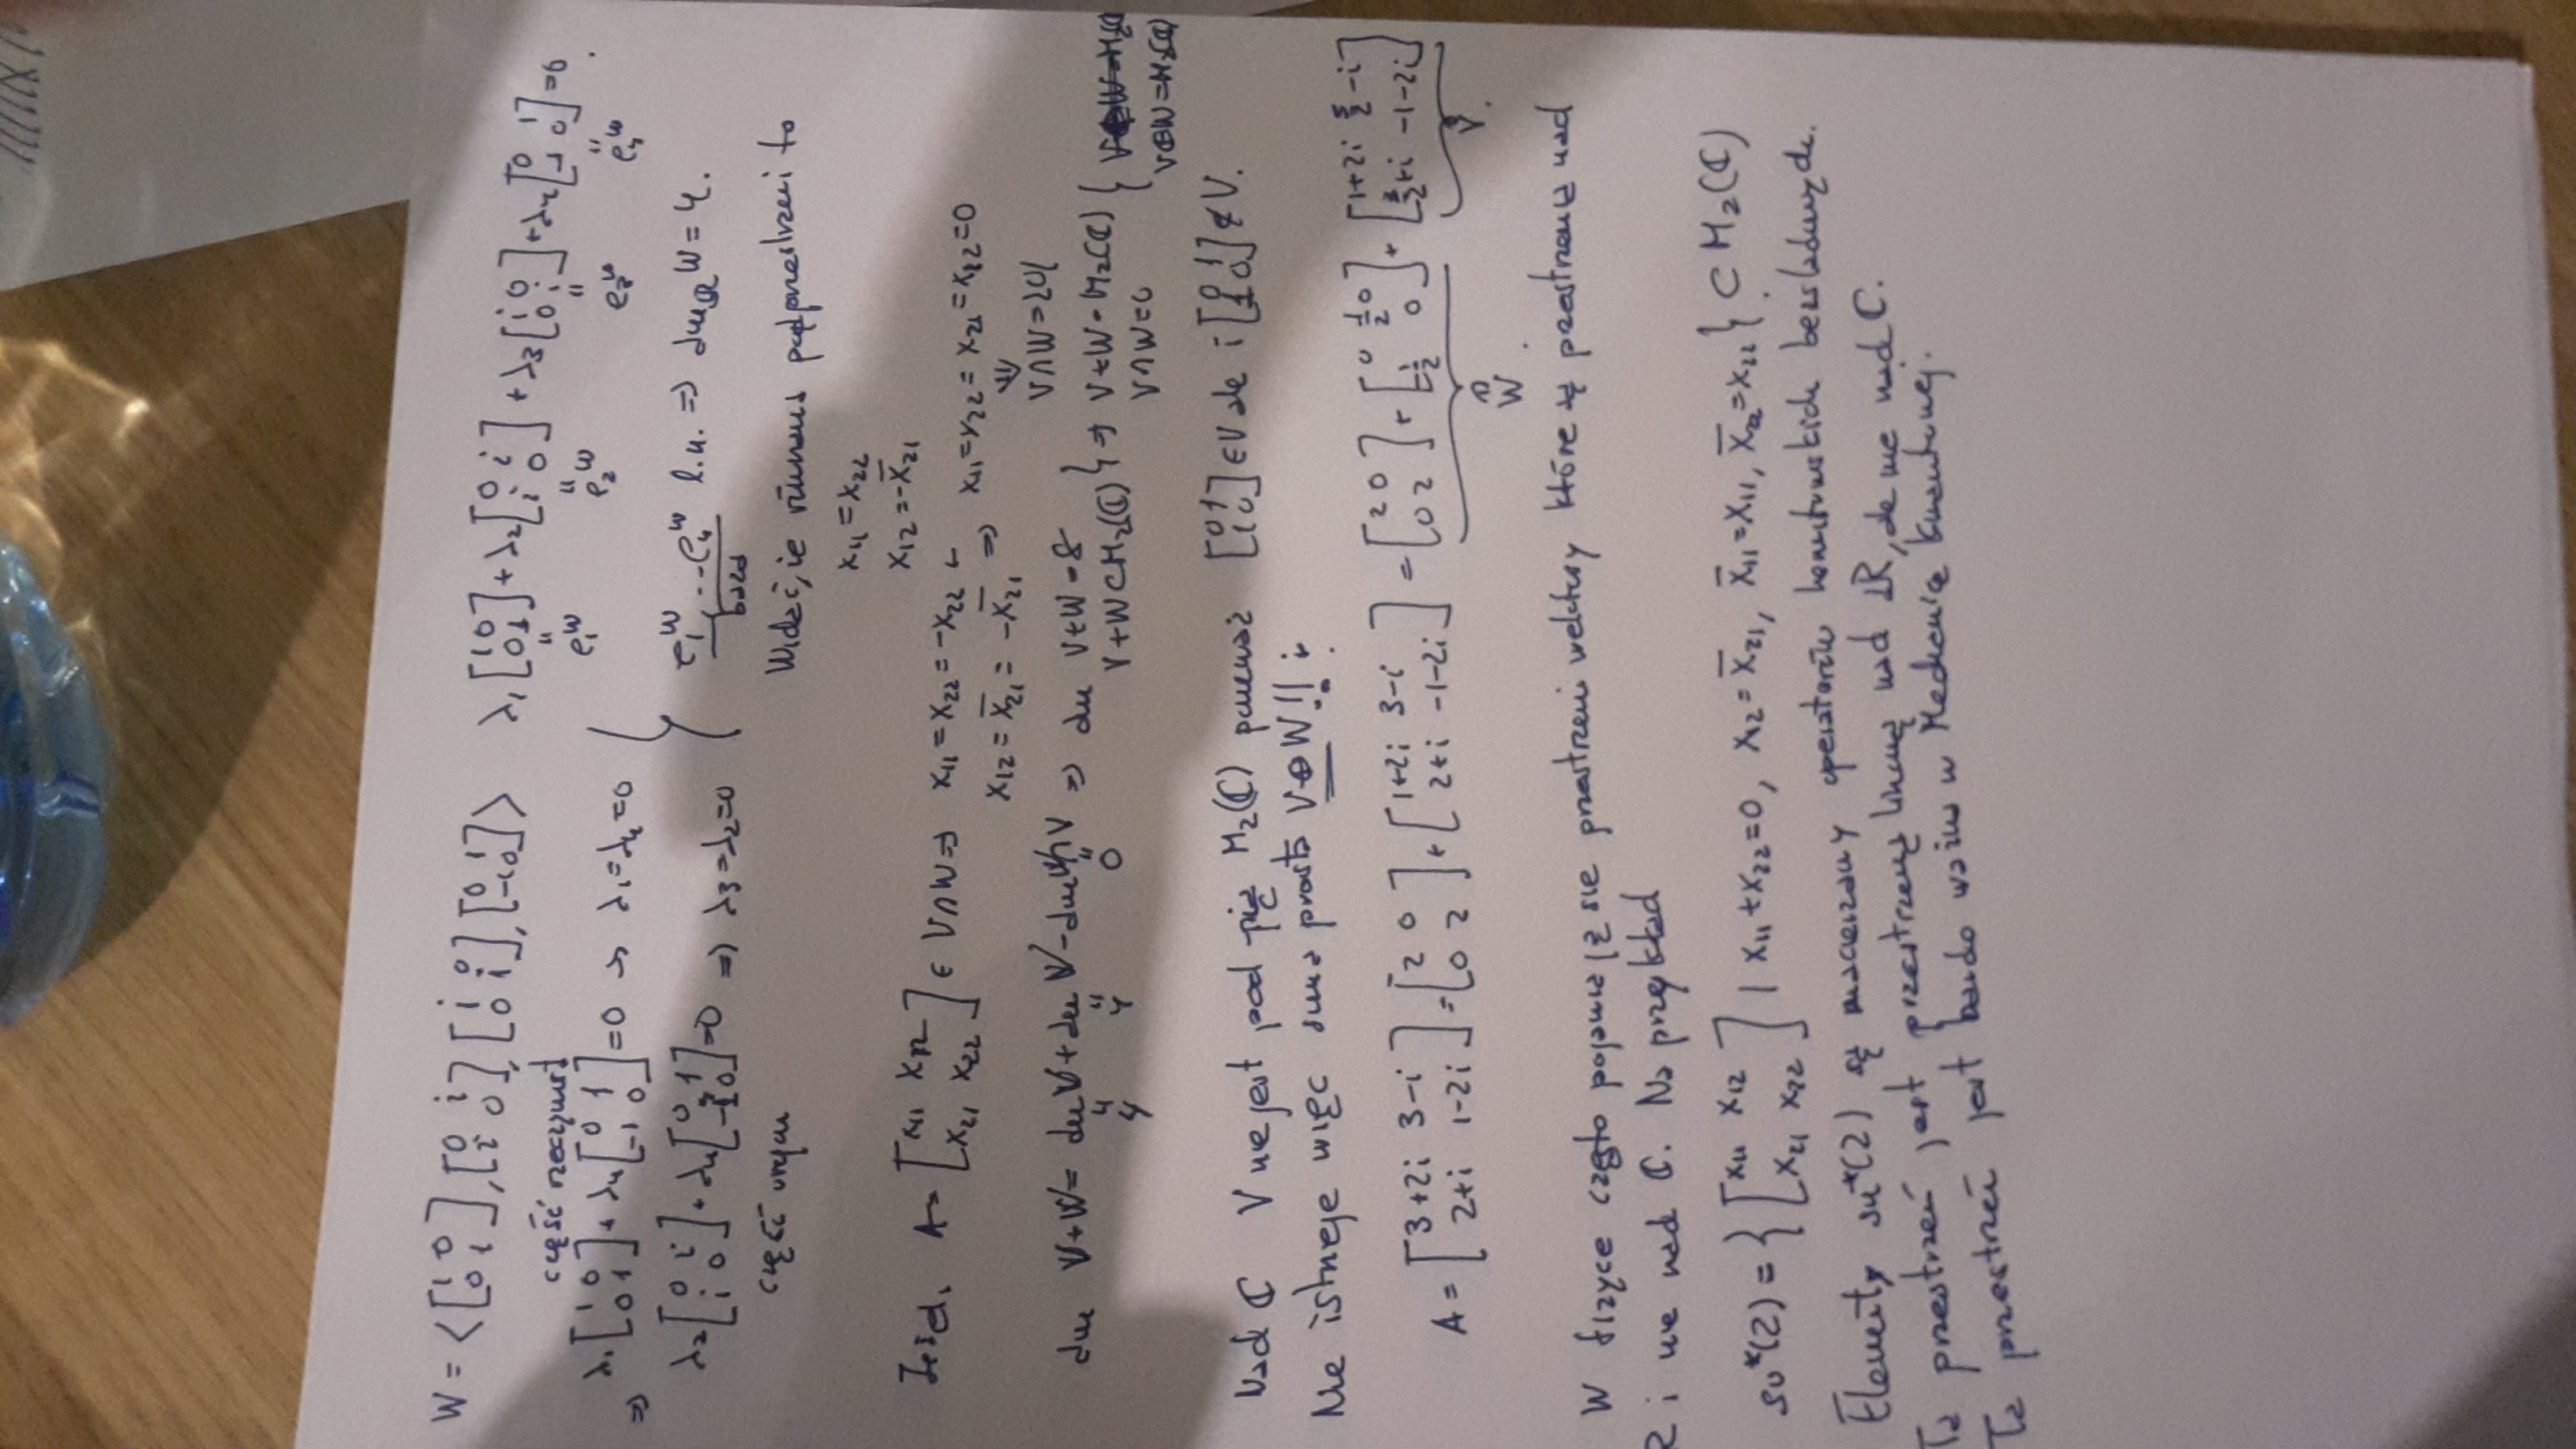 W = < [1 0; 0 1], [0 i; i 0], [i 0; 0 i], [0 1; -1 0] > λ₁[1 0; 0 1] + λ₂[0 i; i 0] + λ₃[i 0; 0 i] + λ₄[0 1; -1 0] = 0.
część rzeczywista e₁ᵂ e₂ᵂ e₃ᵂ e₄ᵂ
⇒ λ₁[1 0; 0 1] + λ₄[0 1; -1 0] = 0 → λ₁ = λ₄ = 0
λ₂[0 i; i 0] + λ₄[0 1; -1 0] = 0 ⇒ λ₃ = λ₂ = 0 } e₁ᵂ -- e₄ᵂ l.n. ⇒ dim_ℝ W = 4.
część urojona baza
Widać, że równania podprzestrzeni to
x₁₁ = x₂₂
x₁₂ = -x̄₂₁
Jeżeli A = [x₁₁ x₁₂; x₂₁ x₂₂] ∈ V∩W ⇒ x₁₁ = x₂₂ = -x₂₂
x₁₂ = x̄₂₁ = -x̄₂₁ ⇒ x₁₁ = x₂₂ = x₂₁ = x₁₂ = 0
⇓
V∩W = {0}
dim V+W = dim V + dim W - dim V∩W ⇒ dim V+W = 8
4 4 0 V+W ⊂ M₂(ℂ) } ⇒ V+W = M₂(ℂ)
V∩W = 0 } V⊕W = M₂(ℂ)
Nad ℂ V nie jest pod prz M₂(ℂ) ponieważ [0 1; 1 0] ∈ V ale i[0 1; 1 0] ∉ V.
Nie istnieje więc suma prosta V⊕W!!
A = [3+2i 3-i; 2+i 1-2i] = [2 0; 0 2] + [1+2i 3-i; 2+i -1-2i] = [2 0; 0 2] + [0 1/2; -1/2 0] + [1+2i 5/2-i; 5/2+i -1-2i]
W V.
W fizyce często pojawiają się przestrzeni wektory które są przestrzenią nad
R i nie nad ℂ. Na przykład
su*(2) = { [x₁₁ x₁₂; x₂₁ x₂₂] | x₁₁+x₂₂=0, x₁₂=x̄₂₁, x̄₁₁=x₁₁, x̄₂₂=x₂₂ } ⊂ M₂(ℂ).
Elementy su*(2) są macierzamy operatorów hermitowskich bezśladowych.
Ta przestrzeń jest przestrzenią liniową nad ℝ, ale nie nad ℂ.
Ta przestrzeń jest bardo ważna w Mechanice kwantowej.